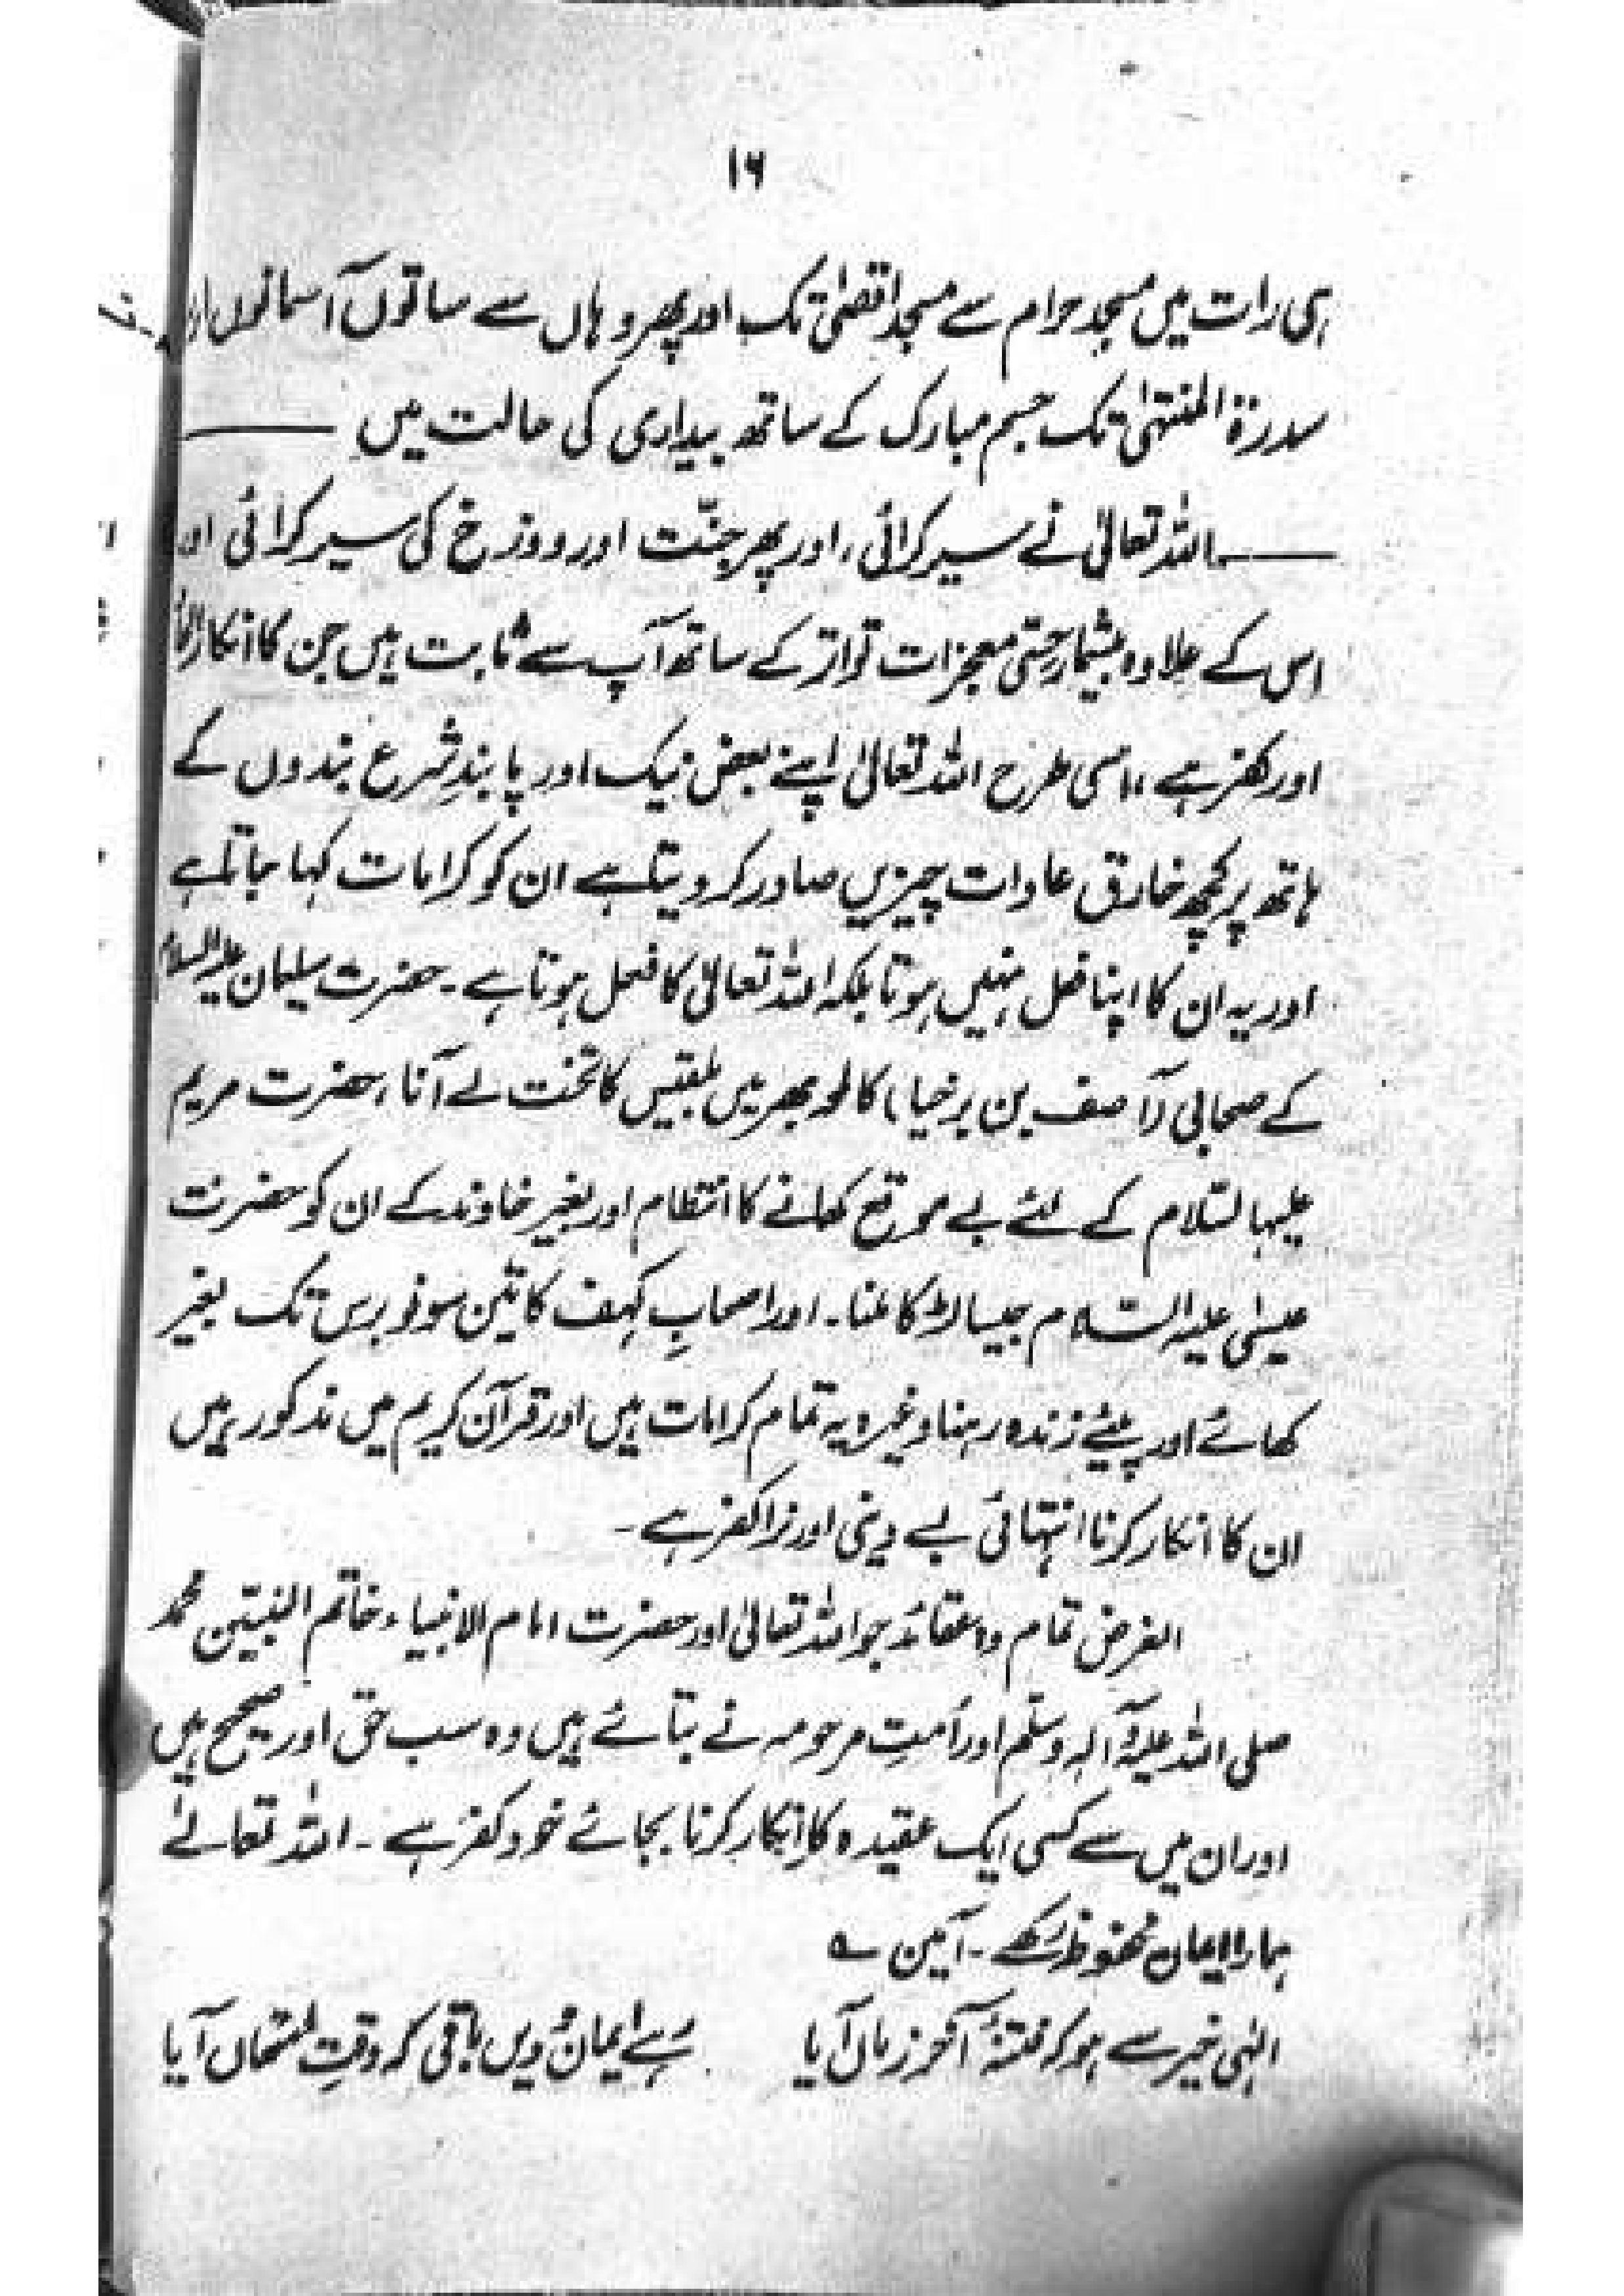 ۱۶
ہی رات میں مسجد حرام سے مسجد اقصٰی تک اور پھر وہاں سے ساتوں آسمانوں اور
سدرۃ المنتہٰی تک جسم مبارک کے ساتھ بیداری کی حالت میں ———
——— اللہ تعالیٰ نے سیر کرائی، اور پھر جنّت اور دوزخ کی سیر کرائی اور
اس کے علاوہ بیشمار حسّی معجزات تواتر کے ساتھ آپ سے ثابت ہیں جن کا انکار
اور کفر ہے، اسی طرح اللہ تعالیٰ اپنے بعض نیک اور پابندِ شرع بندوں کے
ہاتھ پر کچھ خارق عادات چیزیں صادر کر دیتا ہے ان کو کرامات کہا جاتا ہے
اور یہ ان کا اپنا فعل نہیں ہوتا بلکہ اللہ تعالیٰ کا فعل ہوتا ہے۔ حضرت سلیمان علیہ السلام
کے صحابی (آصف بن برخیا) کا لمحہ بھر میں بلقیس کا تخت لے آنا، حضرت مریم
علیہا السّلام کے لئے بے موقع کھانے کا انتظام اور بغیر خاوند کے ان کو حضرت
عیسٰی علیہ السّلام جیسا لڑکا ملنا۔ اور اصحابِ کہف کا تین سو نو برس تک بغیر
کھائے اور پیئے زندہ رہنا وغیرہ یہ تمام کرامات ہیں اور قرآن کریم میں مذکور ہیں
ان کا انکار کرنا انتہائی بے دینی اور نرا کفر ہے۔
الغرض تمام وہ عقائد جو اللہ تعالیٰ اور حضرت امام الانبیاء خاتم النبیّین محمد
صلی اللہ علیہ وآلہ وسلّم اور اُمتِ مرحومہ نے بتائے ہیں وہ سب حق اور صحیح ہیں
اور ان میں سے کسی ایک عقیدہ کا انکار کرنا بجائے خود کفر ہے۔ اللہ تعالےٰ
ہمارا ایمان محفوظ رکھے۔ آمین ؎
الٰہی خیر سے ہو کہ فتنۂ آخر زماں آیا رہے ایمان و دیں باقی کہ وقتِ امتحاں آیا